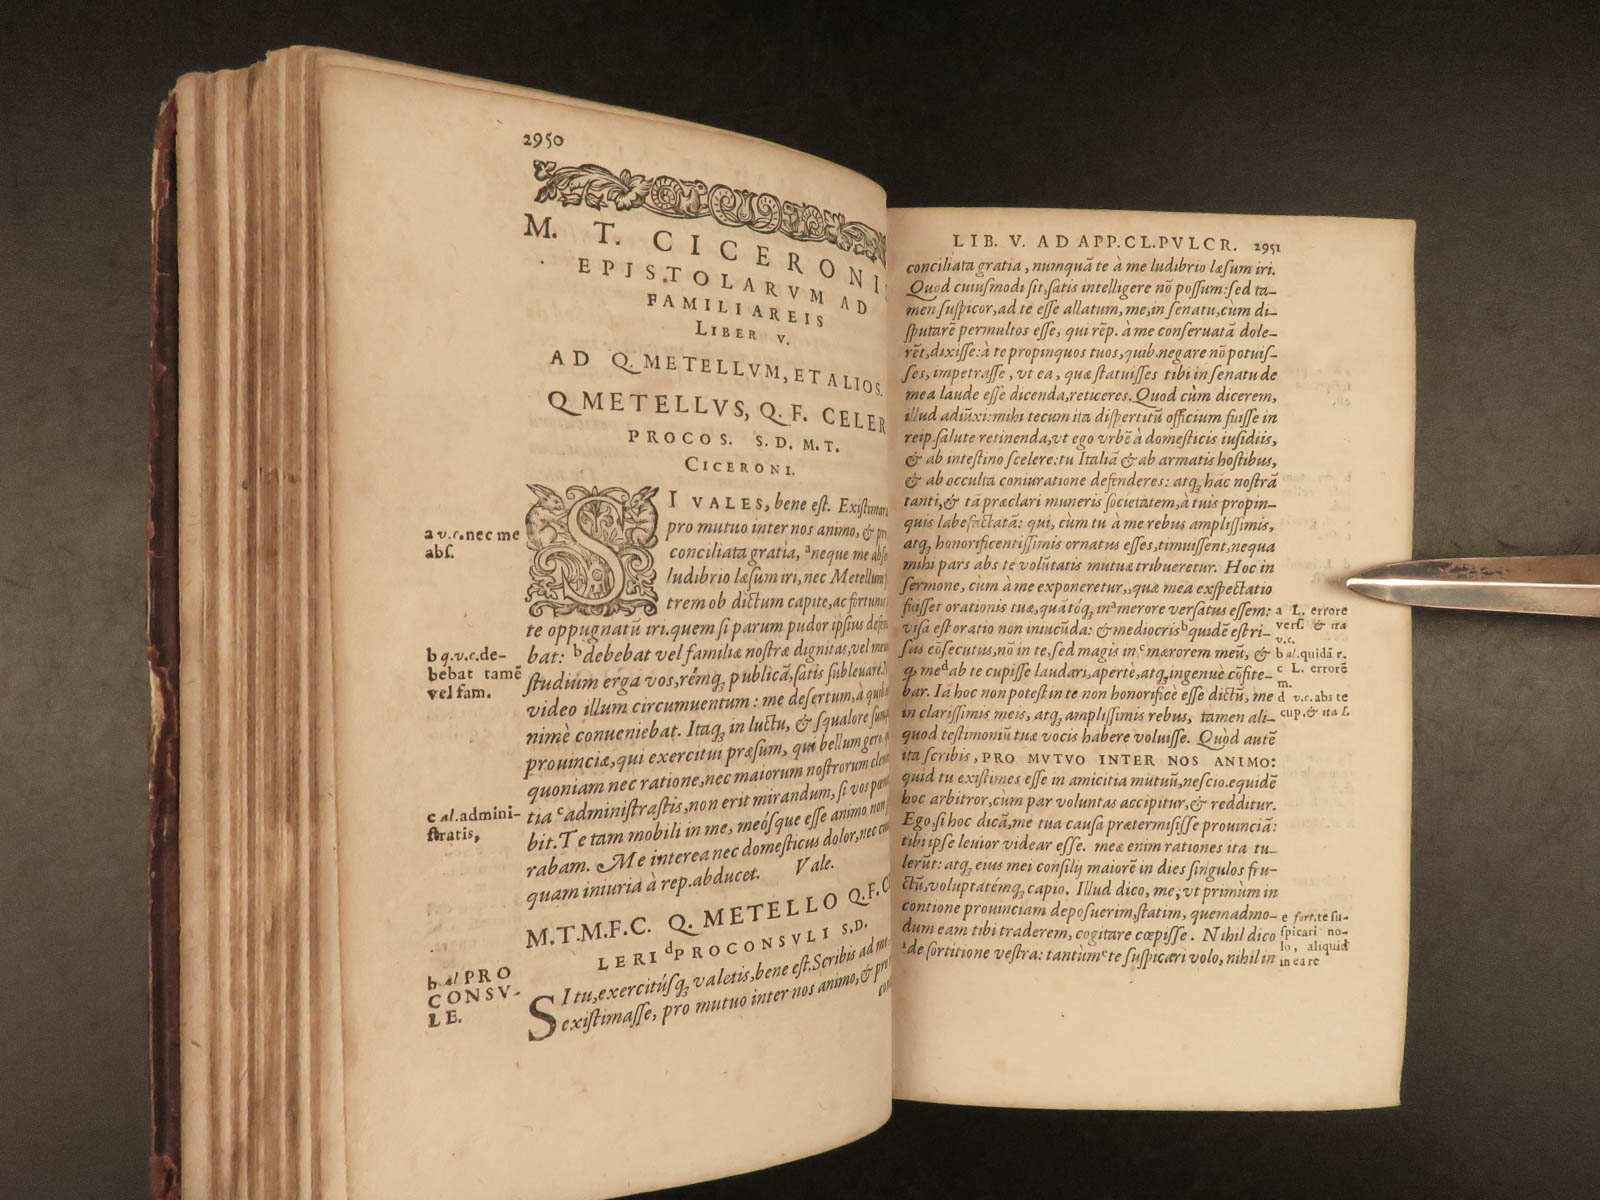 2950
M. T. CICERONI
EPISTOLARVM AD
FAMILIAREIS
LIBER V.
AD Q. METELLVM, ET ALIOS.
Q METELLVS, Q. F. CELER
PROCOS. S. D. M. T.
CICERONI.
SI VALES, bene est. Existimar
pro mutuo inter nos animo, & pr
conciliata gratia, ᵃneque me abse
ludibrio læsum iri, nec Metellum
trem ob dictum capite, ac fortuni
te oppugnatũ iri. quem si parum pudor ipsius defen
bat: ᵇdebebat vel familiæ nostræ dignitas, vel meu
studium erga vos, rémq; publicã, satis subleuare. N
video illum circumuentum: me desertum, à quib
nimè conueniebat. Itaq; in luctu, & squalore sum,
prouinciæ, qui exercitui præsum, qui bellum gero,
quoniam nec ratione, nec maiorum nostrorum cleme
tia ᶜadministrastis, non erit mirandum, si vos pœn
bit. Te tam mobili in me, meósque esse animo non
rabam. Me interea nec domesticus dolor, nec cu
quam iniuria à rep. abducet. Vale.
M. T. M. F. C. Q. METELLO Q. F. C
LERI ᵈPROCONSVLI S.D.
SI tu, exercitúsq; valetis, bene est. Scribis ad me
existimasse, pro mutuo inter nos animo, & pr
con
a v.c. nec me
abs.
b q.v.c.de-
bebat tamẽ
vel fam.
c al.admini-
stratis,
b al PRO
CONSV-
LE.
LIB. V. AD APP. CL. PVLCR. 2951
conciliata gratia, numquã te à me ludibrio læsum iri.
Quod cuiusmodi sit, satis intelligere nõ possum: sed ta-
men suspicor, ad te esse allatum, me, in senatu, cum di-
sputarẽ permultos esse, qui rẽp. à me conseruatã dole-
rẽt, dixisse: à te propinquos tuos, quib. negare nõ potuis-
ses, impetrasse, vt ea, quæ statuisses tibi in senatu de
mea laude esse dicenda, reticeres. Quod cùm dicerem,
illud adiũxi: mihi tecum ita dispertitũ officium fuisse in
reip. salute retinenda, vt ego vrbẽ à domesticis iusidiis,
& ab intestino scelere: tu Italiã & ab armatis hostibus,
& ab occulta coniuratione defenderes: atq; hãc nostrã
tanti, & tã præclari muneris societatem, à tuis propin-
quis labefactatã: qui, cùm tu à me rebus amplissimis,
atq; honorificentissimis ornatus esses, timuissent, nequa
mihi pars abs te volũtatis mutuæ tribueretur. Hoc in
sermone, cùm à me exponeretur, quæ mea exspectatio
fuisset orationis tuæ, quãtóq; inᵃ merore versatus essem:
visa est oratio non iniucũda: & mediocrisᵇ quidẽ est ri-
sus cõsecutus, nõ in te, sed magis inᶜ mærorem meũ, &
q; meᵈ ab te cupisse laudari, apertè, atq; ingenuè cõfite-
bar. Iã hoc non potest in te non honorificè esse dictũ, me
in clarissimis meis, atq; amplissimis rebus, tamen ali-
quod testimoniũ tuæ vocis habere voluisse. Quòd autẽ
ita scribis, PRO MVTVO INTER NOS ANIMO:
quid tu existimes esse in amicitia mutuũ, nescio. equidẽ
hoc arbitror, cùm par voluntas accipitur, & redditur.
Ego, si hoc dicã, me tua causa prætermisisse prouinciã:
tibi ipse leuior videar esse. meæ enim rationes ita tu-
lerũt: atq; eius mei consilij maiorẽ in dies singulos fru-
ctũ, voluptatémq; capio. Illud dico, me, vt primùm in
contione prouinciam deposuerim, statim, quemadmo-
dum eam tibi traderem, cogitare cœpisse. Nihil dico
de sortitione vestra: tantùmᵉ te suspicari volo, nihil in
a L. errore
vers. & ita
v.c.
b al. quidã r.
c L. errorẽ
m.
d v.c. abs te
cup. & ita L
e fort. te su-
spicari no-
lo, aliquid
in ea re